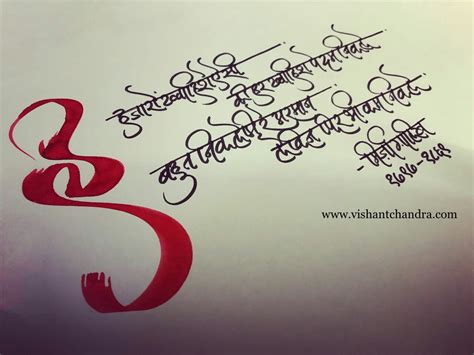 हज़ारों ख्वाहिशें ऐसी
की हर ख्वाहिश पे दम निकले
बहुत निकले मेरे अरमान
लेकिन फिर भी कम निकले
- मिर्ज़ा ग़ालिब
१७९७-१८६९
www.vishantchandra.com